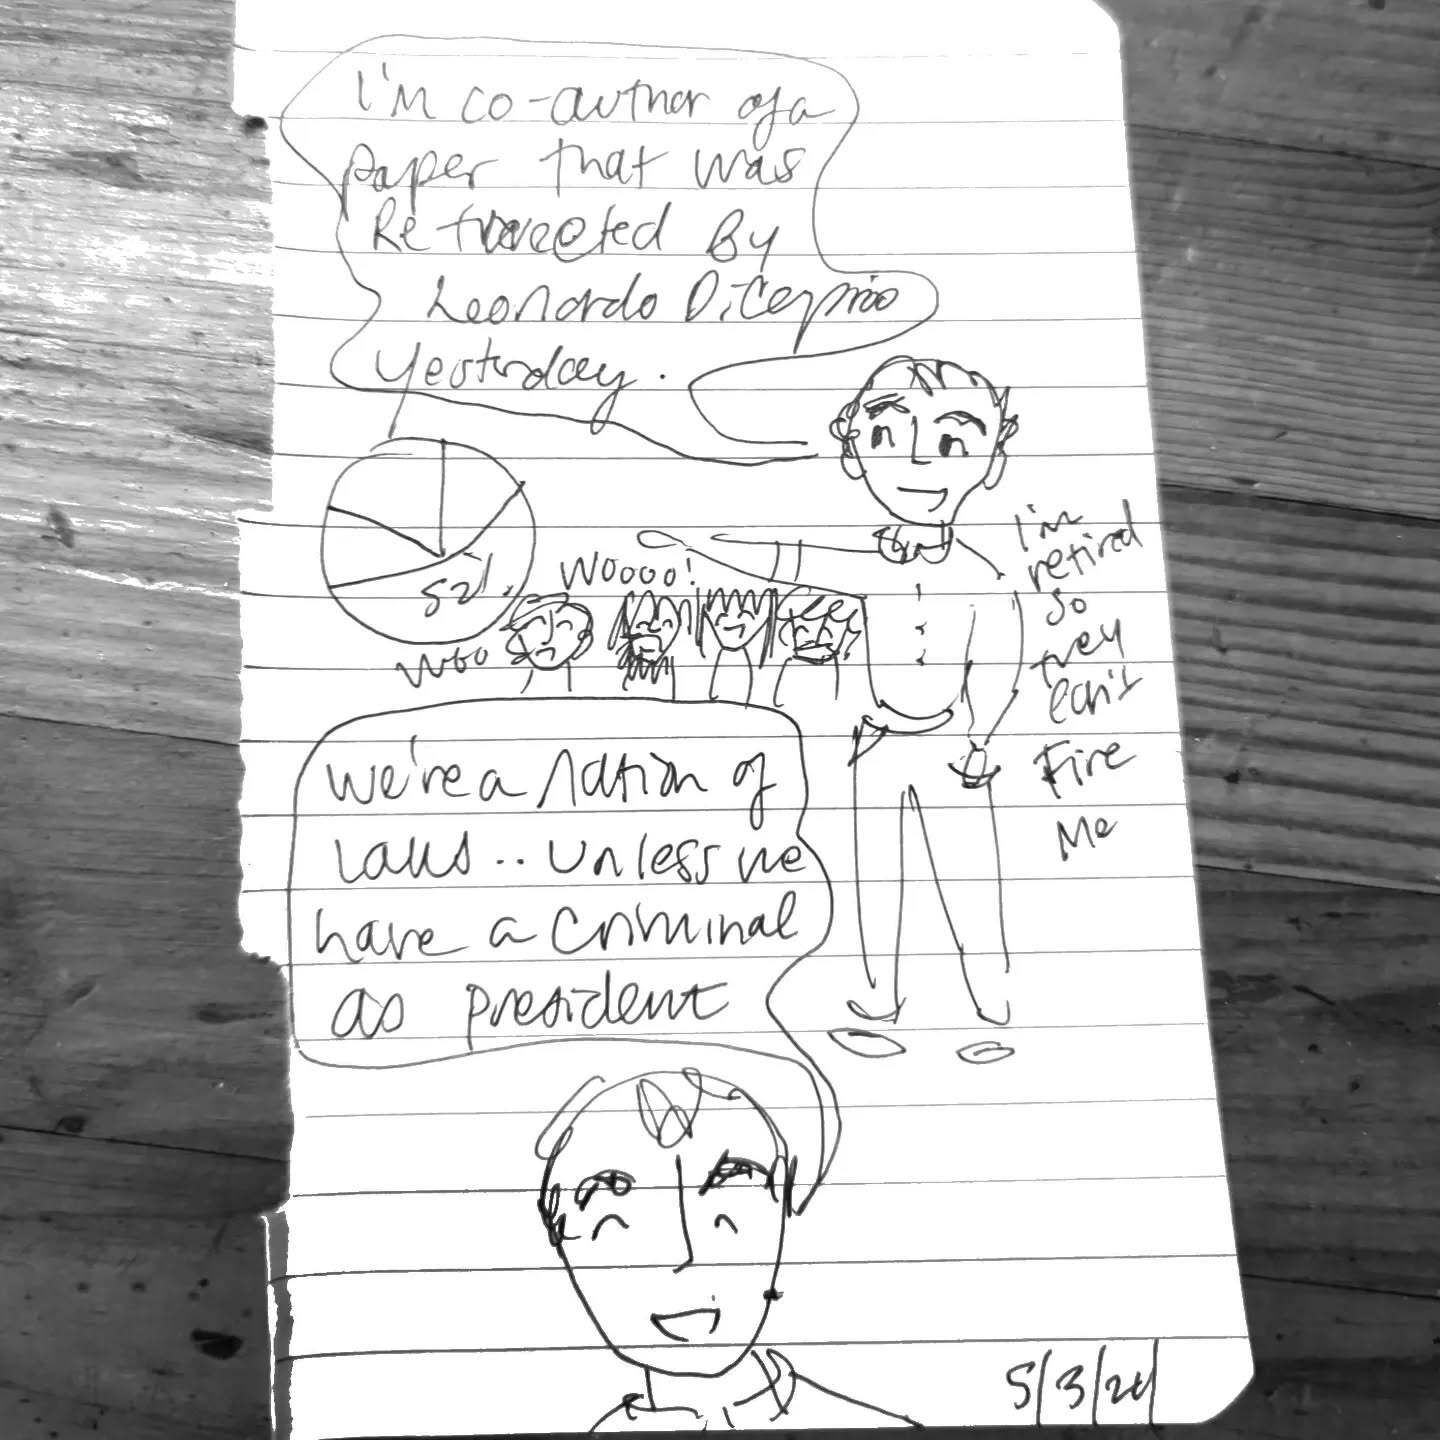 I'm co-author of a
paper that was
Retweeted By
Leonardo DiCaprio
Yesterday.
52%
Woooo!
Woo
I'm
retired
so
they
can't
Fire
Me
We're a nation of
laws.. unless we
have a criminal
as president
5/3/24